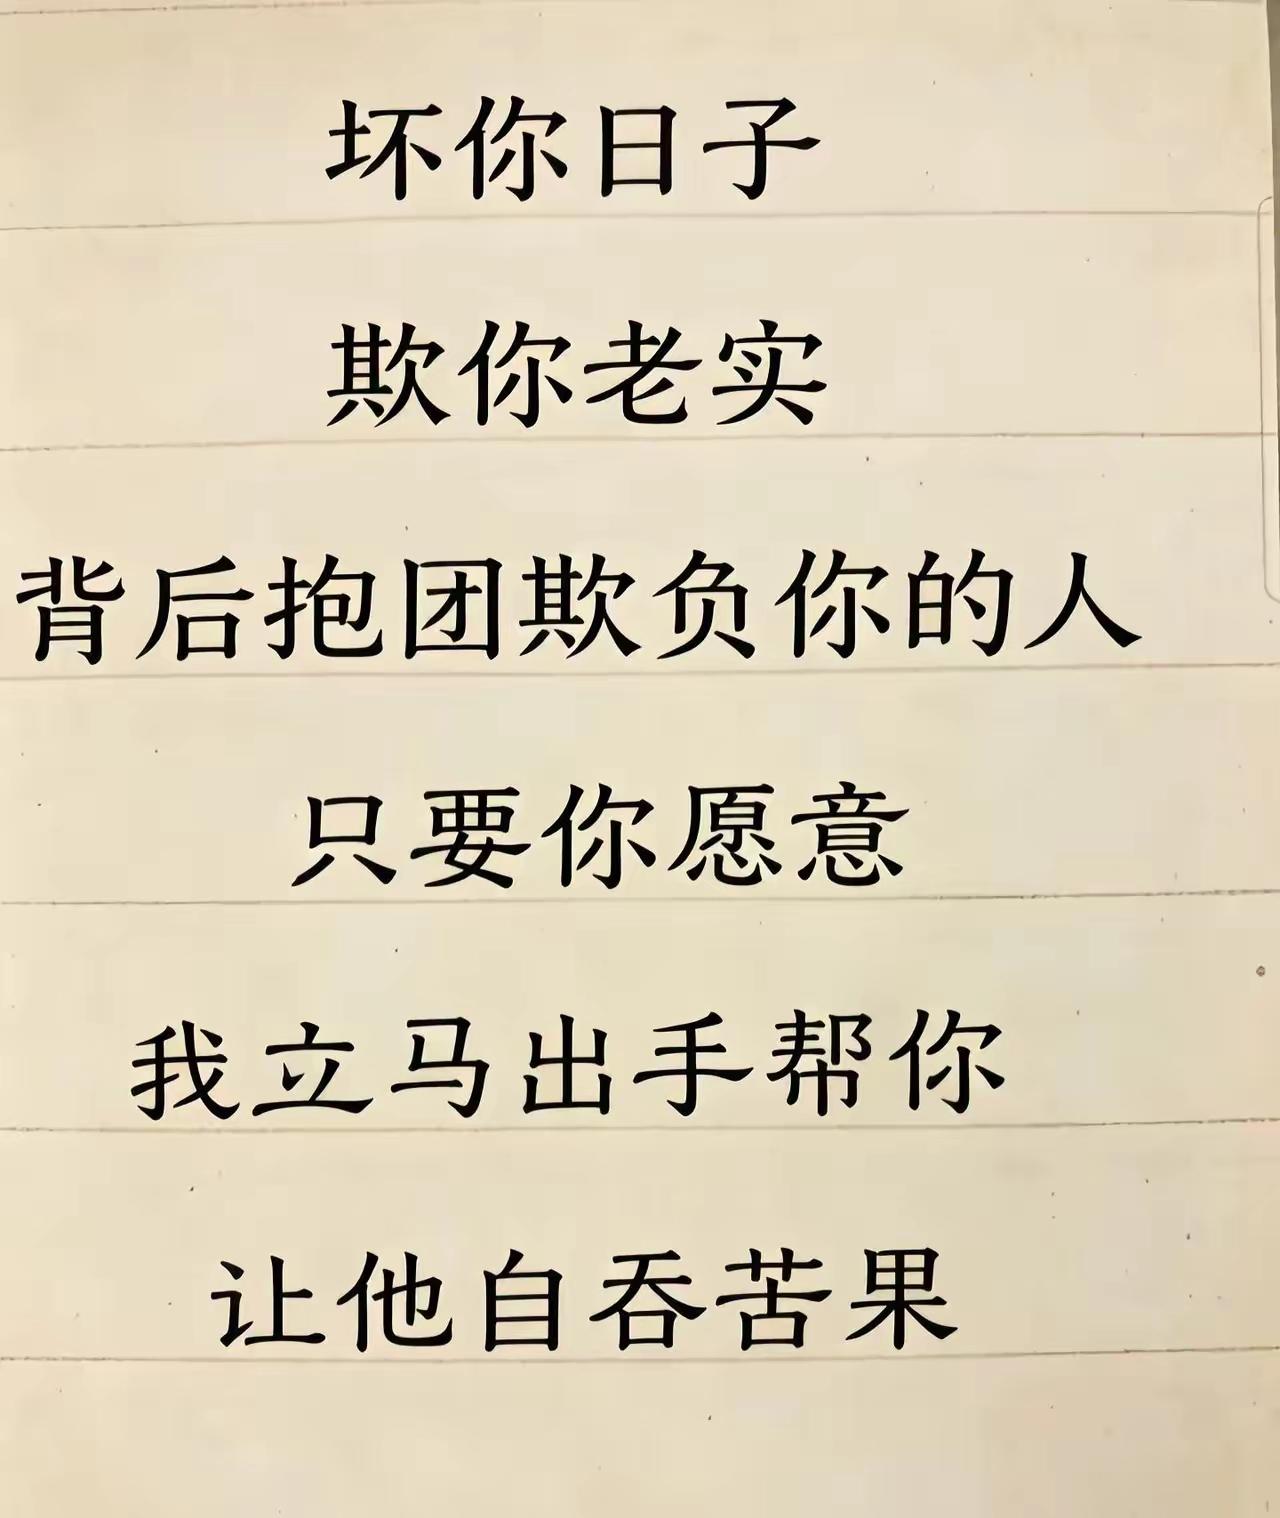 坏你日子
欺你老实
背后抱团欺负你的人
只要你愿意
我立马出手帮你
让他自吞苦果